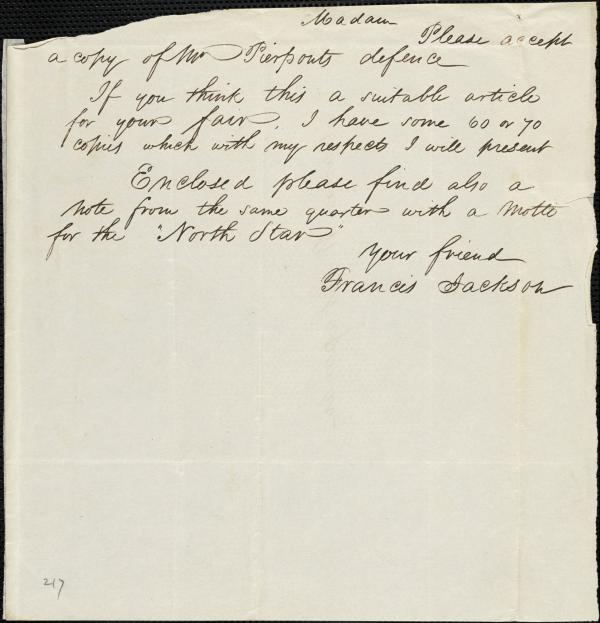 Madam
Please accept
a copy of Mr Pierponts defence
If you think this a suitable article
for your fair, I have some 60 or 70
copies which with my respects I will present
Enclosed please find also a
note from the same quarter with a Motto
for the "North Star"
Your friend
Francis Jackson
217